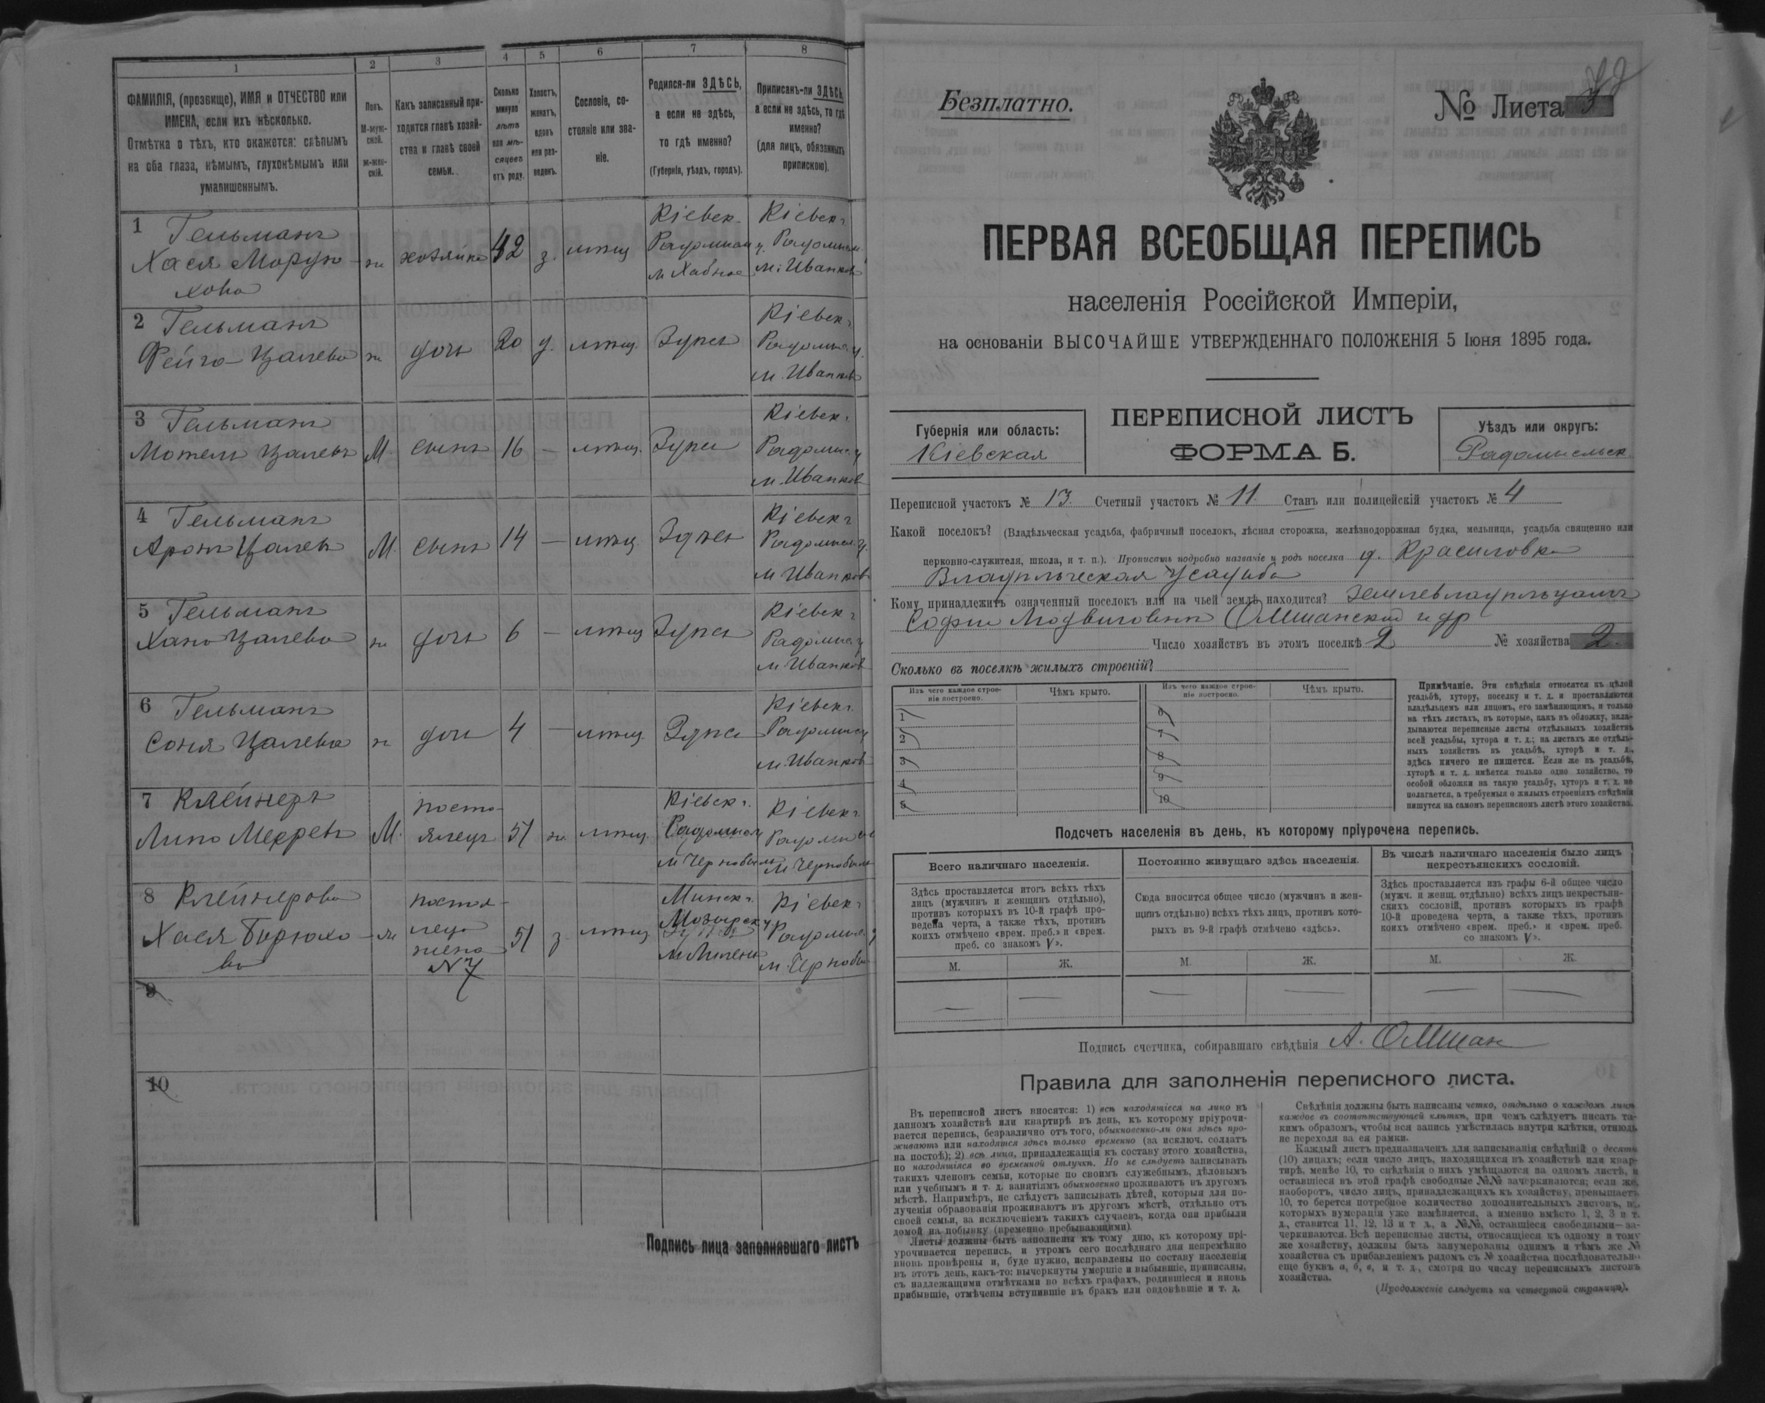 1 2 3 4 5 6 7 8
ФАМИЛІЯ, (прозвище), ИМЯ и ОТЧЕСТВО или
ИМЕНА, если ихъ нѣсколько.
Отмѣтка о тѣхъ, кто окажется: слѣпымъ
на оба глаза, нѣмымъ, глухонѣмымъ или
умалишеннымъ.
Полъ.
М-муж-
ской.
ж-жен-
скій.
Какъ записанный при-
ходится главѣ хозяй-
ства и главѣ своей
семьи.
Сколько
минуло
лѣтъ
или мѣ-
сяцевъ
отъ роду.
Холостъ,
женатъ,
вдовъ
или раз-
веденъ.
Сословіе, со-
стояніе или зва-
ніе.
Родился-ли ЗДѢСЬ,
а если не здѣсь,
то гдѣ именно?
(Губернія, уѣздъ, городъ).
Приписанъ-ли ЗДѢСЬ,
а если не здѣсь, то гдѣ
именно?
(для лицъ, обязанныхъ
припискою).
1 Гельманъ
Хася
хова
ж хозяйка 42 з. мѣщ
Кіевск.
Радомысл
м Хабное
Кіевск.
у. Радомысл.
м. Иванков
2 Гельманъ
Фейга Цалева
ж дочь 20 д. мѣщ. Здѣсь
Кіевск.
Радомысл у.
м. Иванков
3 Гельманъ
Мотель Цалевъ
М. сынъ 16 — мѣщ. Здѣсь
Кіевск.
Радомысл у
м. Иванков
4 Гельманъ
Аронъ Цалевъ
М. сынъ 14 — мѣщ Здѣсь
Кіевск.
Радомысл у.
м Иванков
5 Гельманъ
Хана Цалева
ж дочь 6 — мѣщ Здѣсь
Кіевск.
Радомысл у
м Иванков
6 Гельманъ
Соня Цалева
ж дочь 4 — мѣщ Здѣсь
Кіевск.
Радомысл у
м Иванков
7 Клейнеръ
Липа
М. посто-
ялецъ 51 ж мѣщ
Кіевск.
Радомысл у
м Чернобыль
Кіевск.
Радомысл
м Чернобыль
8 Клейнерова
Хася Борюхо-
ва
ж постоя-
лецъ
жена
№ 7
51 з мѣщ
Минск.
Мозырск у
Кіевск.
Радомысл у
м. Чернобы
9
10
Подпись лица заполнявшаго листъ
Безплатно.
№ Листа
ПЕРВАЯ ВСЕОБЩАЯ ПЕРЕПИСЬ
населенія Россійской Имперіи,
на основаніи ВЫСОЧАЙШЕ УТВЕРЖДЕННАГО ПОЛОЖЕНІЯ 5 Іюня 1895 года.
Губернія или область:
Кіевская
ПЕРЕПИСНОЙ ЛИСТЪ
ФОРМА Б.
Уѣздъ или округъ:
Радомысльск
Переписной участокъ № 13. Счетный участокъ № 11 Станъ или полицейскій участокъ № 4
Какой поселокъ? (Владѣльческая усадьба, фабричный поселокъ, лѣсная сторожка, желѣзнодорожная будка, мельница, усадьба священно или
церковно-служителя, школа, и т. п.). Прописать подробно названіе и родъ поселка д. Красиловка
Владѣльческая усадьба
Кому принадлежитъ означенный поселокъ или на чьей землѣ находится? землевладѣльцамъ
Софіи Людвиговнѣ Олшанской и др
Число хозяйствъ въ этомъ поселкѣ 2 № хозяйства 2.
Сколько въ поселкѣ жилыхъ строеній?
Изъ чего каждое строе-
ніе построено.
Чѣмъ крыто.
Изъ чего каждое строе-
ніе построено.
Чѣмъ крыто.
1 6
2 7
3 8
4 9
5 10
Примѣчаніе. Эти свѣдѣнія относятся къ цѣлой
усадьбѣ, хутору, поселку и т. д. и проставляются
владѣльцемъ или лицомъ, его замѣняющимъ, и только
на тѣхъ листахъ, въ которые, какъ въ обложку, вкла-
дываются переписные листы отдѣльныхъ хозяйствъ
всей усадьбы, хутора и т. д.; на листахъ же отдѣль-
ныхъ хозяйствъ въ усадьбѣ, хуторѣ и т. д.,
здѣсь ничего не пишется. Если же въ усадьбѣ,
хуторѣ и т. д. имѣется только одно хозяйство, то
особой обложки на такую усадьбу, хуторъ и т. д. не
полагается, а требуемыя о жилыхъ строеніяхъ свѣдѣнія
пишутся на самомъ переписномъ листѣ этого хозяйства.
Подсчетъ населенія въ день, къ которому пріурочена перепись.
Всего наличнаго населенія.
Здѣсь проставляется итогъ всѣхъ тѣхъ
лицъ (мужчинъ и женщинъ отдѣльно),
противъ которыхъ въ 10-й графѣ про-
ведена черта, а также тѣхъ, противъ
коихъ отмѣчено «врем. преб.» и «врем.
преб. со знакомъ V».
Постоянно живущаго здѣсь населенія.
Сюда вносится общее число (мужчинъ и жен-
щинъ отдѣльно) всѣхъ тѣхъ лицъ, противъ кото-
рыхъ въ 9-й графѣ отмѣчено «здѣсь».
Въ числѣ наличнаго населенія было лицъ
некрестьянскихъ сословій.
Здѣсь проставляется изъ графы 6-й общее число
(мужч. и женщ. отдѣльно) всѣхъ лицъ некрестьян-
скихъ сословій, противъ которыхъ въ графѣ
10-й проведена черта, а также тѣхъ, противъ
коихъ отмѣчено «врем. преб.» и «врем. преб.
со знакомъ V».
М. Ж. М. Ж. М. Ж.
— — — — — —
Подпись счетчика, собиравшаго свѣдѣнія А. Олшан
Правила для заполненія переписного листа.
Въ переписной листъ вносятся: 1) всѣ находящіеся на лицо въ
данномъ хозяйствѣ или квартирѣ въ день, къ которому пріурочи-
вается перепись, безразлично отъ того, обыкновенно-ли они здѣсь про-
живаютъ или находятся здѣсь только временно (за исключ. солдатъ
на постоѣ); 2) всѣ лица, принадлежащія къ составу этого хозяйства,
но находящіяся во временной отлучкѣ. Но не слѣдуетъ записывать
такихъ членовъ семьи, которые по своимъ служебнымъ, дѣловымъ
или учебнымъ и т. д. занятіямъ обыкновенно проживаютъ въ другомъ
мѣстѣ. Напримѣръ, не слѣдуетъ записывать дѣтей, которыя для по-
лученія образованія проживаютъ въ другомъ мѣстѣ, отдѣльно отъ
своей семьи, за исключеніемъ такихъ случаевъ, когда они прибыли
домой на побывку (временно пребывающими).
Листы должны быть заполнены къ тому дню, къ которому прі-
урочивается перепись, и утромъ сего послѣдняго дня непремѣнно
вновь провѣрены и, буде нужно, исправлены по составу населенія
въ этотъ день, какъ-то: вычеркнуты умершіе и выбывшіе, приписаны,
съ надлежащими отмѣтками во всѣхъ графахъ, родившіеся и вновь
прибывшіе, отмѣчены вступившіе въ бракъ или овдовѣвшіе и т. д.
Свѣдѣнія должны быть написаны четко, отдѣльно о каждомъ лицѣ
каждое въ соотвѣтствующей клѣткѣ, при чемъ слѣдуетъ писать та-
кимъ образомъ, чтобы вся запись умѣстилась внутри клѣтки, отнюдь
не переходя за ея рамки.
Каждый листъ предназначенъ для записыванія свѣдѣній о десяти
(10) лицахъ; если число лицъ, находящихся въ хозяйствѣ или квар-
тирѣ, менѣе 10, то свѣдѣнія о нихъ умѣщаются на одномъ листѣ, и
оставшіеся въ этой графѣ свободные №№ зачеркиваются; если же,
наоборотъ, число лицъ, принадлежащихъ къ хозяйству, превышаетъ
10, то берется потребное количество дополнительныхъ листовъ, въ
которыхъ нумерація уже измѣняется, а именно вмѣсто 1, 2, 3 и т.
д., ставятся 11, 12, 13 и т д., а №№, оставшіеся свободными—за-
черкиваются. Всѣ переписные листы, относящіеся къ одному и тому
же хозяйству, должны быть занумерованы однимъ и тѣмъ же №
хозяйства съ прибавленіемъ рядомъ съ № хозяйства послѣдовательно
еще буквъ а, б, в, и т. д., смотря по числу переписныхъ листовъ
хозяйства.
(Продолженіе слѣдуетъ на четвертой страницѣ).